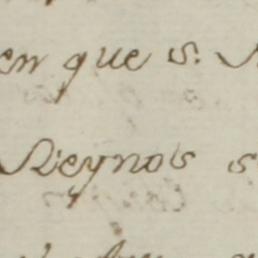 en que s.
Reynos s